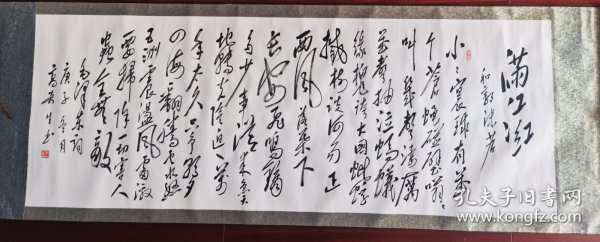 滿江红
和郭沫若
小小寰球有几
个苍蝇碰壁嗡嗡
叫几声凄厉
几声抽泣蚂蚁
缘槐夸大国蚍蜉
撼树谈何易正
西风落叶下
长安飞鸣镝
多少事从来急天
地转光阴迫一万
年太久只争朝夕
四海翻腾云水怒
五洲震荡风雷激
要扫除一切害人
虫全无敌
毛泽东词
庚子冬月
孔夫子旧书网
www.kongfz.com